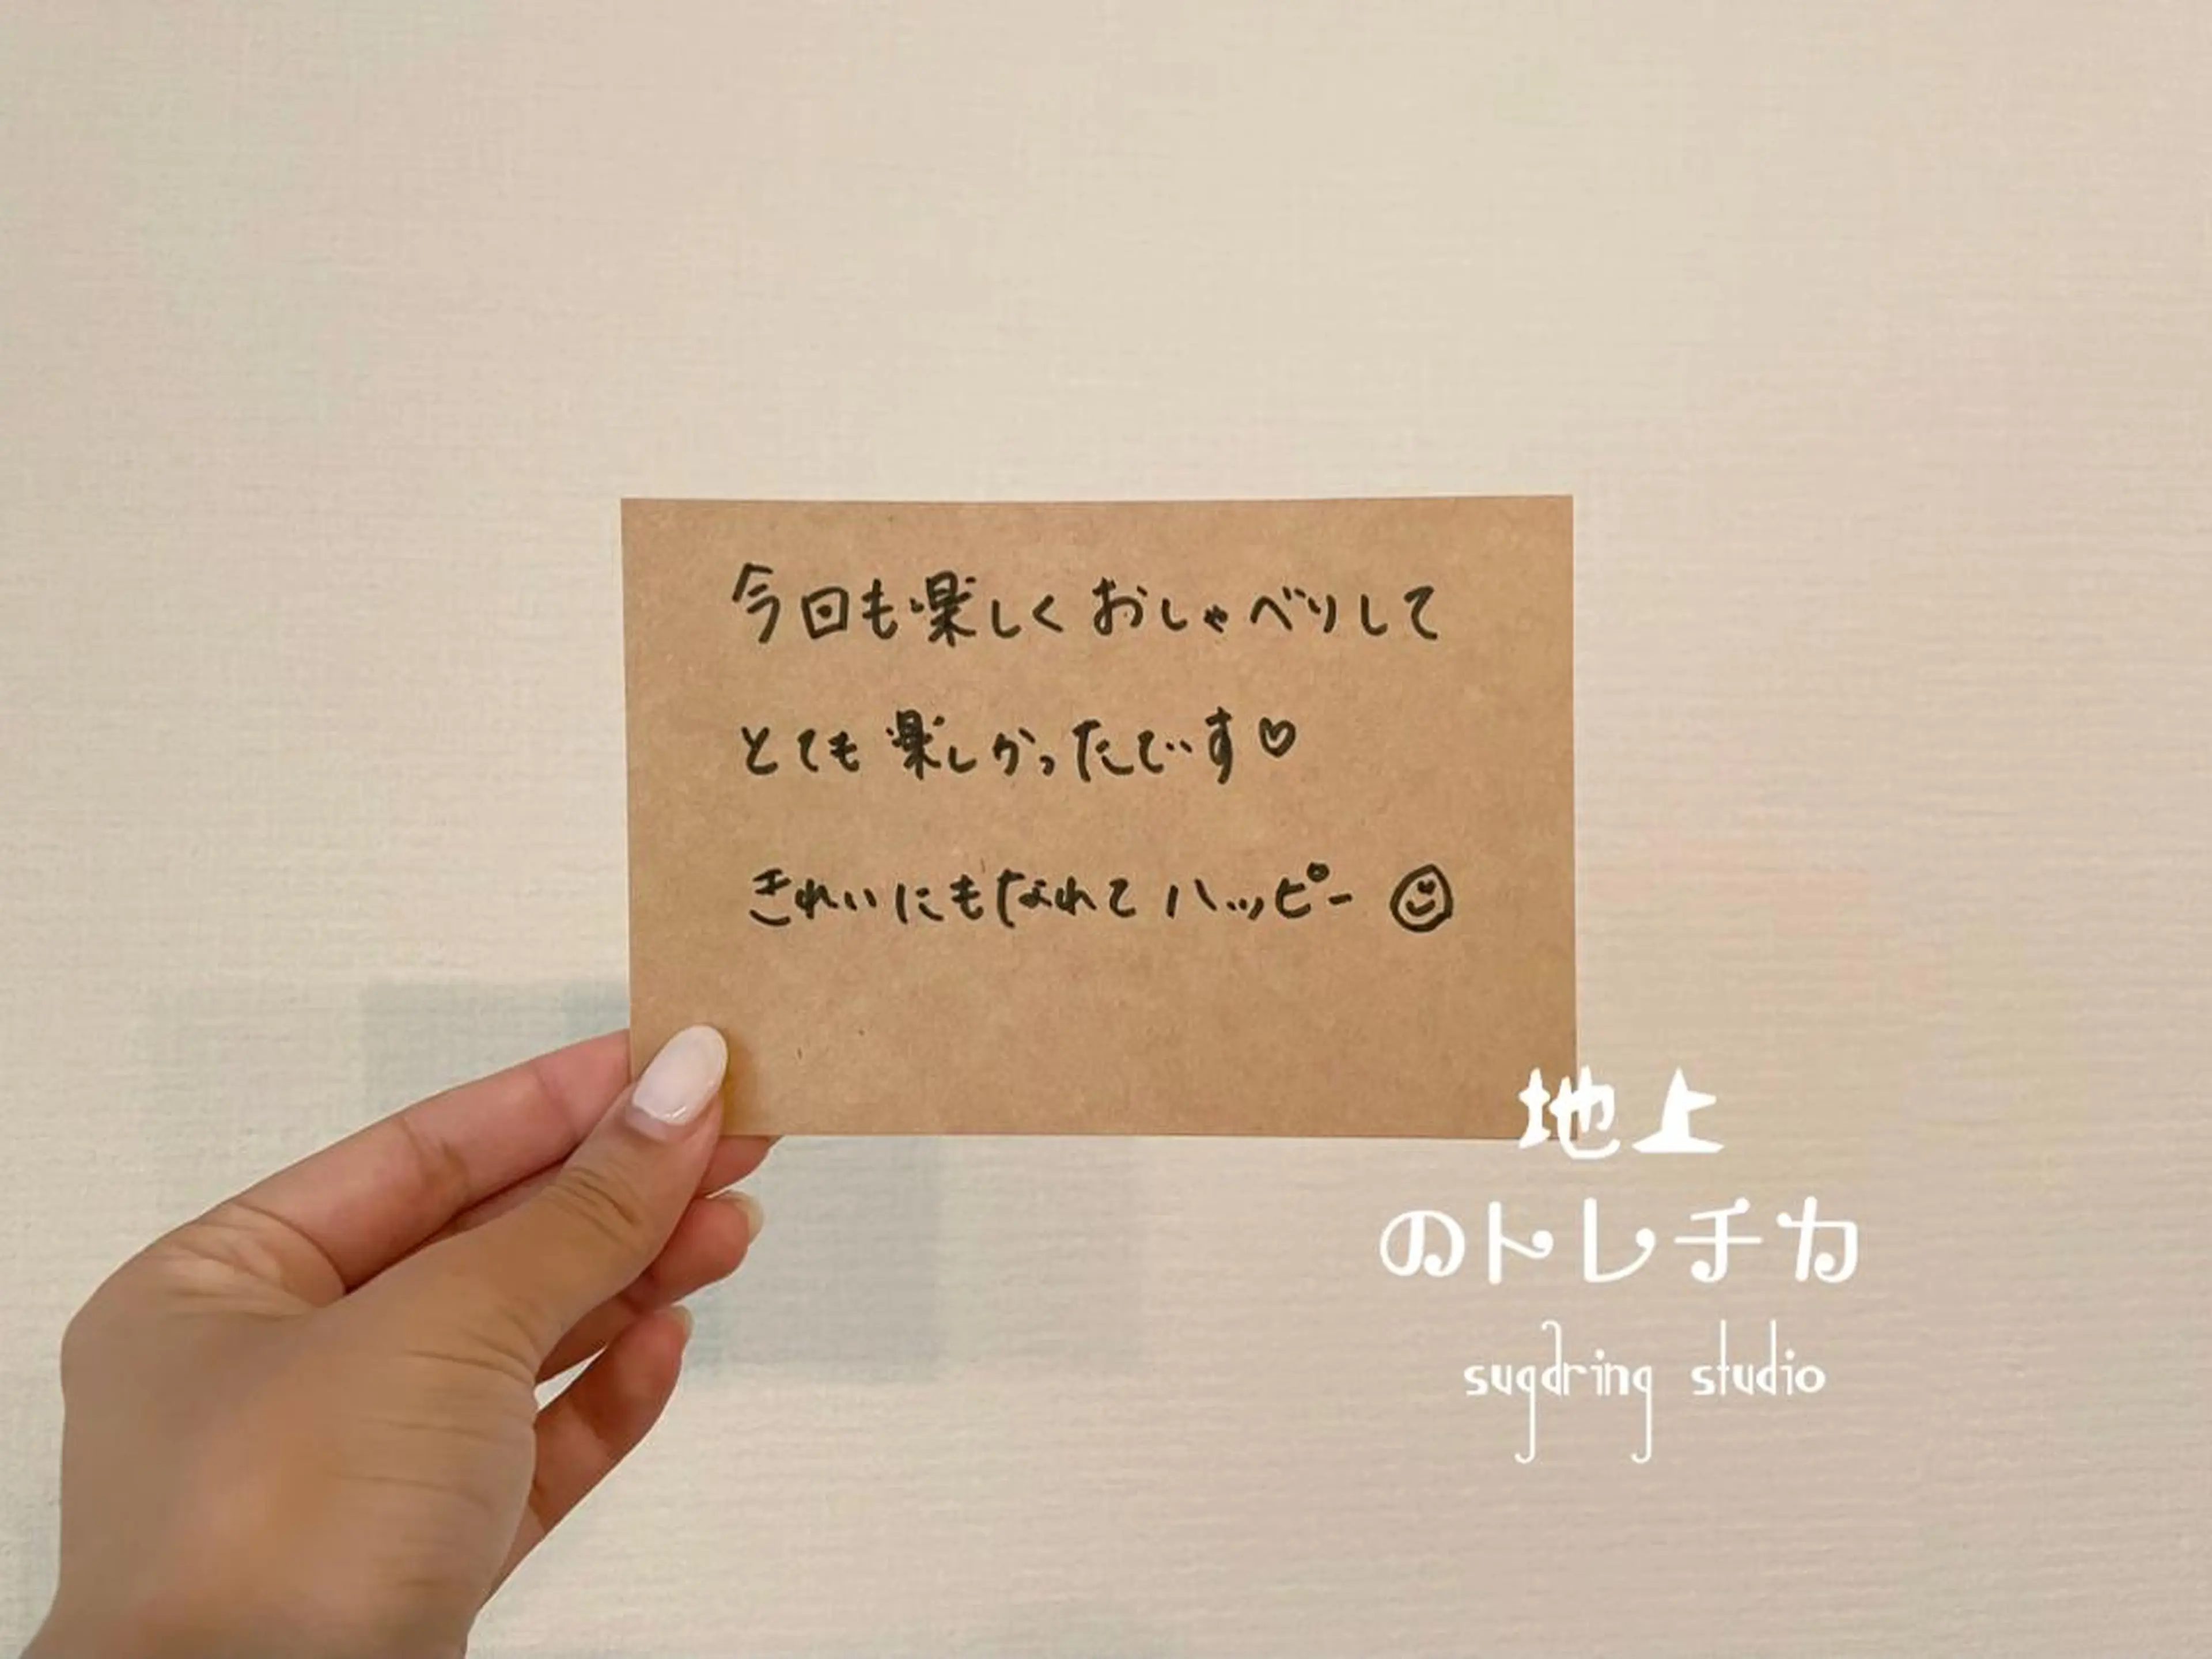 今回も楽しくおしゃべりして
とても楽しかったです♡
きれいにもなれてハッピー☺
地上
のトレチカ
sugaring studio